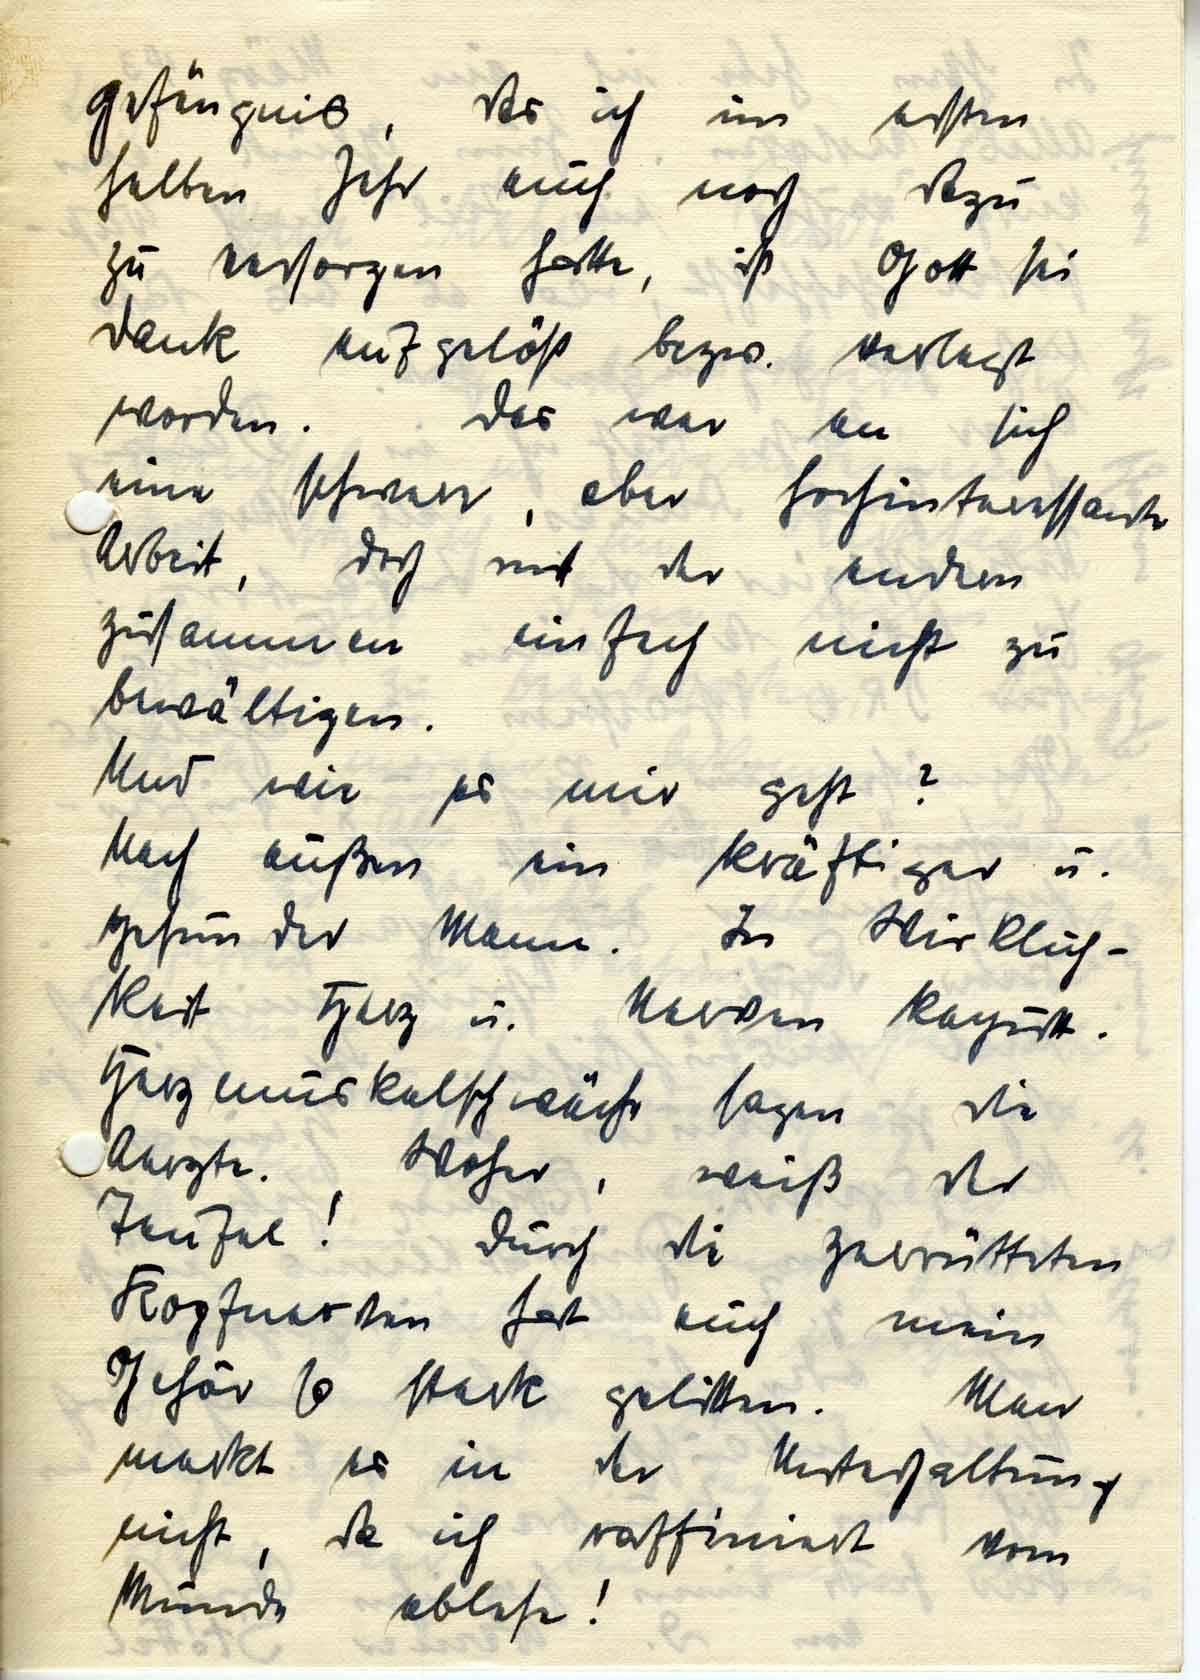 Gefängnis, das ich im ersten
halben Jahr auch noch dazu
zu versorgen hatte, ist Gott sei
Dank aufgelöst bezw. verlegt
worden. Das war an sich
eine schwere, aber hochinteressante
Arbeit, doch mit der andren
zusammen einfach nicht zu
bewältigen.
Und wie es mir geht?
Nach außen ein kräftiger u.
gesunder Mann. In Wirklich-
keit Herz u. Nerven kaputt.
Herzmuskelschwäche sagen die
Aerzte. Woher, weiß der
Teufel! Durch die zerrütteten
Kopfnerven hat auch mein
Gehör so stark gelitten. Man
merkt es in der Unterhaltung
nicht, da ich raffiniert vom
Munde ablese!